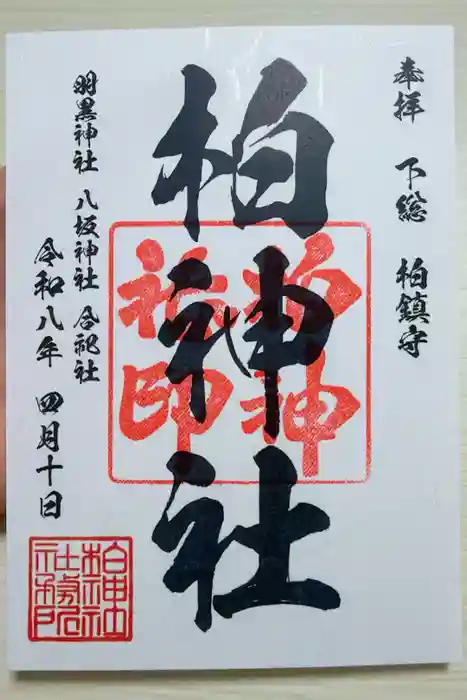 奉拝 下総 柏鎮守
柏神社
羽黒神社 八坂神社 合祀社
令和八年 四月十日
柏神社印
柏神社社務所印